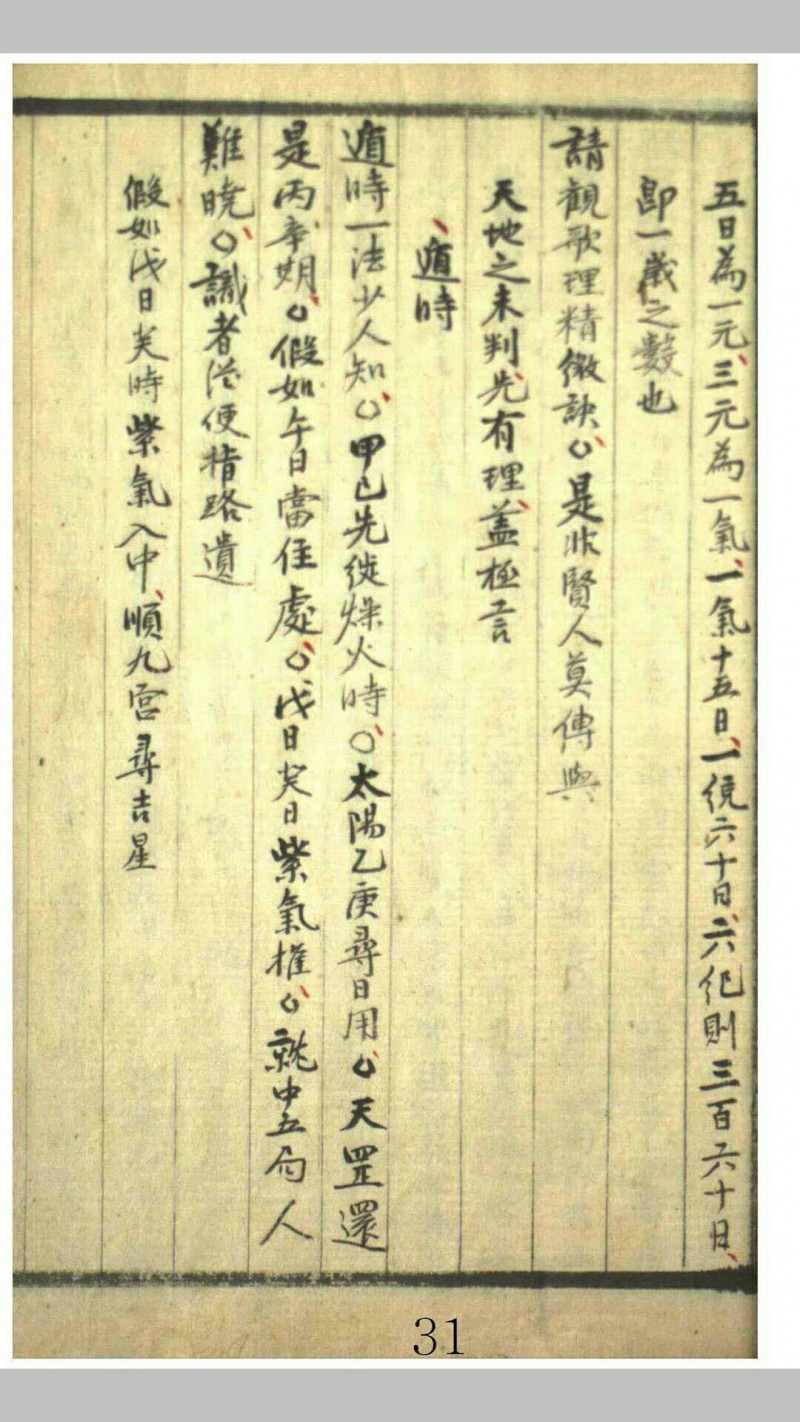 五日為一元、三元為一氣、一氣十五日、一統六十日、六紀則三百六十日、
即一歲之數也
請觀歌理精微訣○、是非賢人莫傳與
天地之未判、先有理、蓋極言
、遁時
遁時一法少人知○、甲己先從燥火時○、太陽乙庚尋日用○、天罡還
是丙辛期○、假如午日當住處○、戊日癸日紫氣權○、就中五局人
難曉○、識者從便指路遺
假如戊日癸時紫氣入中、順九宮尋吉星
31